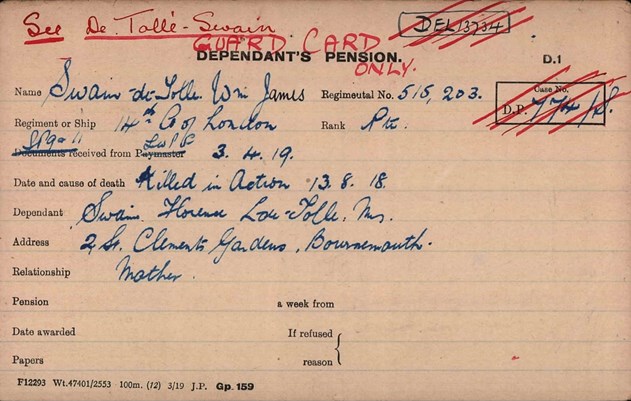 See De-Tollé-Swain.
DEL 13734
GUARD CARD
ONLY.
DEPENDANT'S PENSION.
D.1
Name Swain-de-Tolle. Wm James Regimental No. 515,203.
Case No.
D.P. 774/S.
Regiment or Ship 14th Co of London Rank Pte.
Documents received from Paymaster 3. 4. 19.
Date and cause of death Killed in Action 13. 8. 18.
Dependant Swain. Florence Lou-Tolle, Mrs.
Address 2, St. Clements Gardens, Bournemouth.
Relationship Mother.
Pension a week from
Date awarded If refused
Papers reason
F12293 Wt.47401/2553 100m. (12) 3/19 J.P. Gp. 159